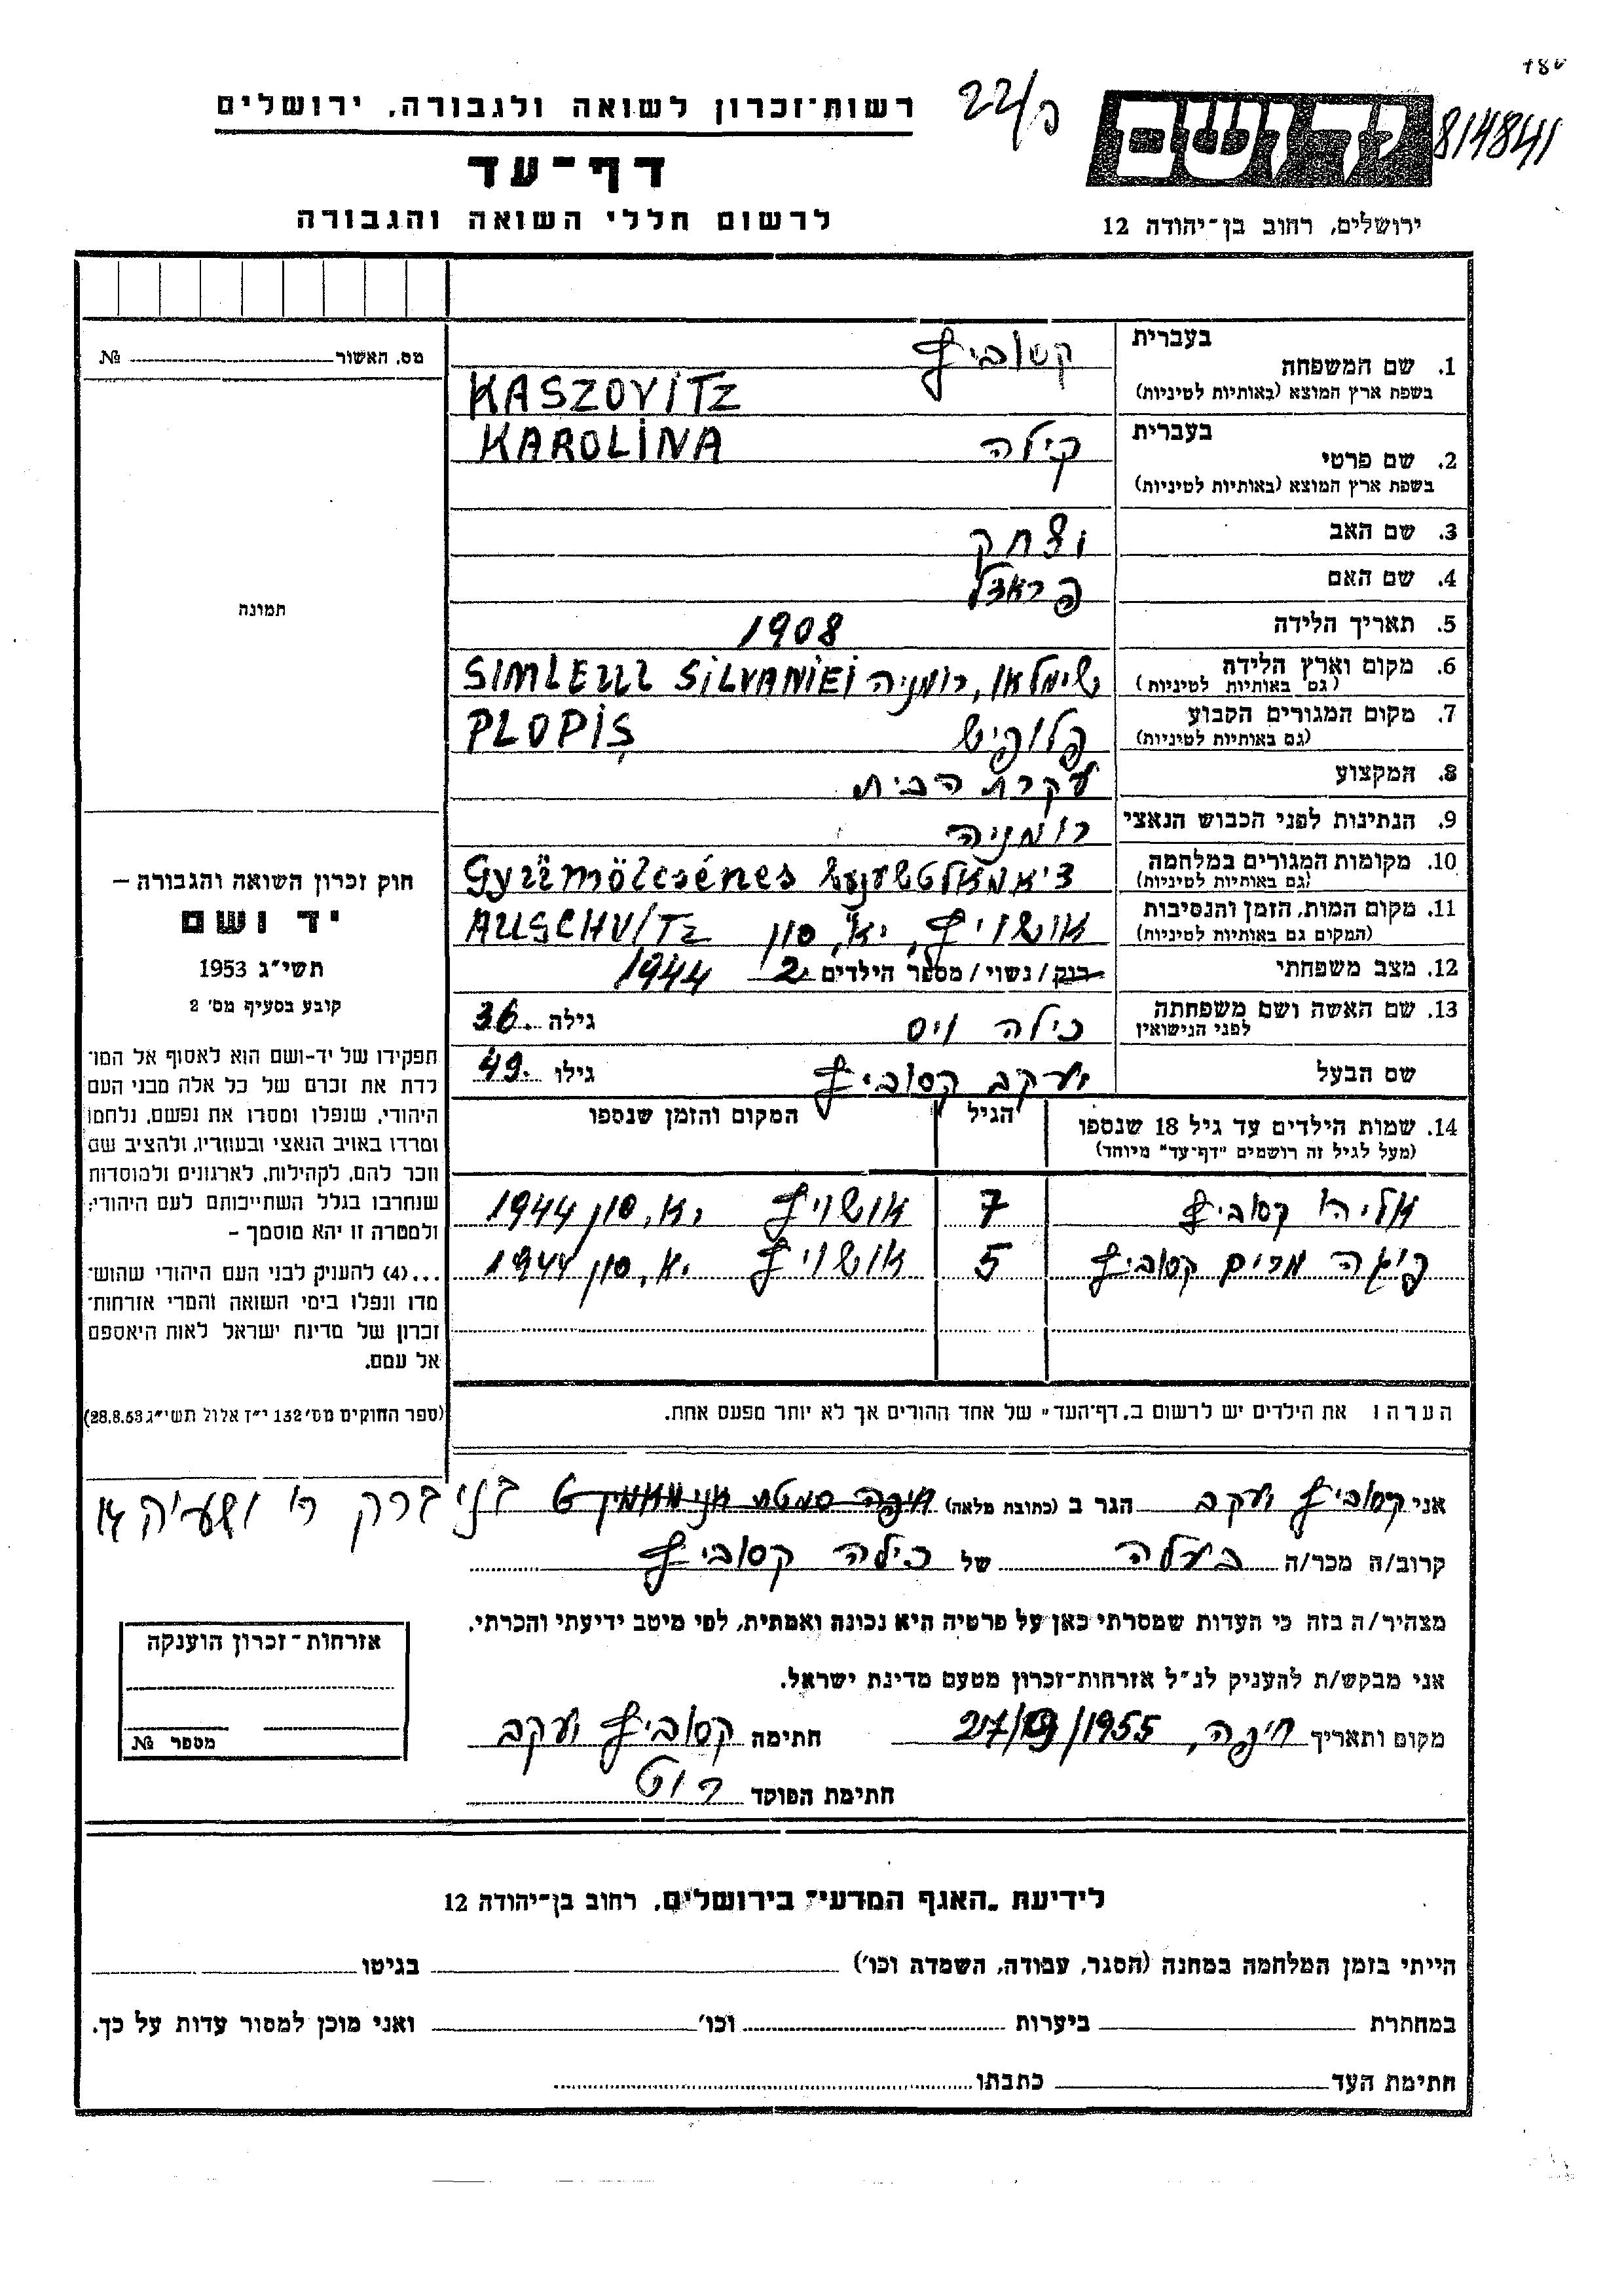 רשות־זכרון לשואה ולגבורה, ירושלים
דף־עד
לרשום חללי השואה והגבורה
22/כ
814841
ירושלים, רחוב בן־יהודה 12
מס. האשור № 
תמונה
חוק זכרון השואה והגבורה –
יד ושם
תשי״ג 1953
קובע בסעיף מס׳ 2
תפקידו של יד-ושם הוא לאסוף אל המו־
לדת את זכרם של כל אלה מבני העם
היהודי, שנפלו ומסרו את נפשם, נלחמו
ומרדו באויב הנאצי ובעוזריו, ולהציב שם
וזכר להם, לקהילות, לארגונים ולמוסדות
שנחרבו בגלל השתייכותם לעם היהודי;
ולמטרה זו יהא מוסמך –
...(4) להעניק לבני העם היהודי שהוש־
מדו ונפלו בימי השואה והמרי אזרחות־
זכרון של מדינת ישראל לאות היאספם
אל עמם.
(ספר החוקים מס׳ 132 י״ז אלול תשי״ג 28.8.53)
בעברית קסוביץ
1. שם המשפחה
בשפת ארץ המוצא (באותיות לטיניות) KASZOVITZ
בעברית קילה KAROLINA
2. שם פרטי
בשפת ארץ המוצא (באותיות לטיניות)
3. שם האב יצחק
4. שם האם
5. תאריך הלידה 1908
6. מקום וארץ הלידה שימלאו, רומניה SIMLEUL SILVANIEI
(גם באותיות לטיניות)
7. מקום המגורים הקבוע פלופיש PLOPIŞ
(גם באותיות לטיניות)
8. המקצוע עקרת הבית
9. הנתינות לפני הכבוש הנאצי רומניה
10. מקומות המגורים במלחמה Gyümölcsénes
(גם באותיות לטיניות)
11. מקום המות, הזמן והנסיבות אושויץ, יא, סון AUSCHVITZ
(המקום גם באותיות לטיניות)
12. מצב משפחתי רוק / נשוי / מספר הילדים 2 1944
13. שם האשה ושם משפחתה כילה ויס גילה 36
לפני הנישואין
שם הבעל יעקב קסוביץ גילו 49
14. שמות הילדים עד גיל 18 שנספו הגיל המקום והזמן שנספו
(מעל לגיל זה רושמים "דף־עד" מיוחד)
אליהו קסוביץ 7 אושויץ יא, סון 1944
פיגה מרים קסוביץ 5 אושויץ יא, סון 1944
הערה: את הילדים יש לרשום ב„דף־העד" של אחד ההורים אך לא יותר מפעם אחת.
אני קסוביץ יעקב הגר ב (כתובת מלאה) בני ברק ר׳ ישעיה
קרוב/ה מכר/ה בעלה של כילה קסוביץ
מצהיר/ה בזה כי העדות שמסרתי כאן על פרטיה היא נכונה ואמתית, לפי מיטב ידיעתי והכרתי.
אני מבקש/ת להעניק לנ״ל אזרחות־זכרון מטעם מדינת ישראל.
מקום ותאריך חיפה, 1955 חתימה קסוביץ יעקב
חתימת הפוקד
אזרחות־זכרון הוענקה
מספר №
לידיעת „האגף המדעי" בירושלים, רחוב בן־יהודה 12
הייתי בזמן המלחמה במחנה (הסגר, עבודה, השמדה וכו׳) בגיטו
במחתרת ביערות וכו׳ ואני מוכן למסור עדות על כך.
חתימת העד כתבתו